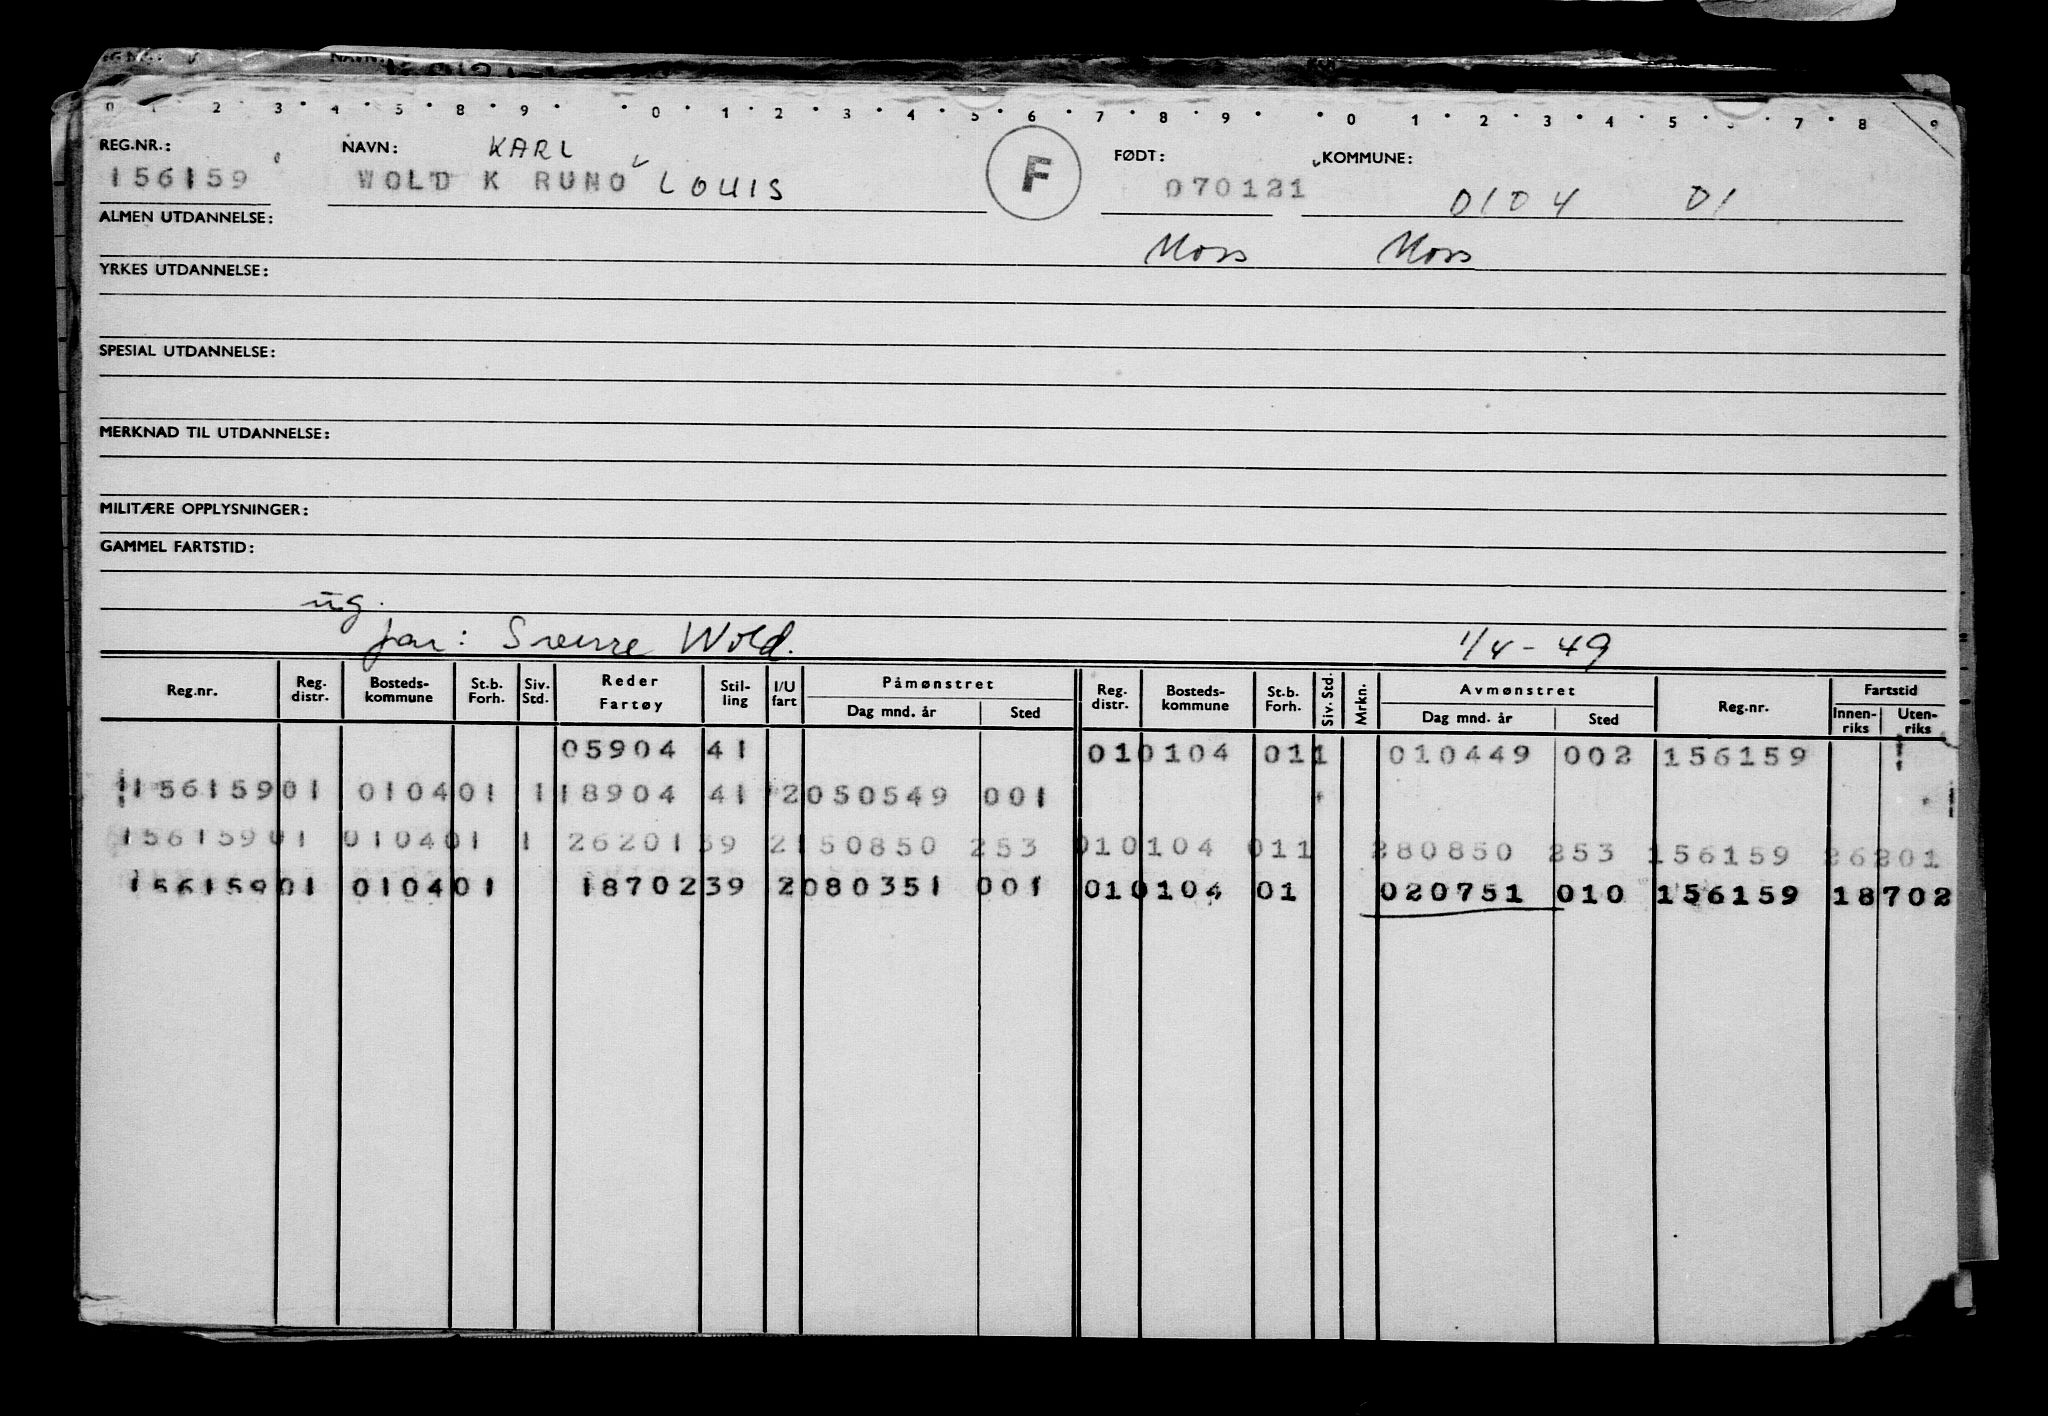 0 1 2 3 4 5 8 9 0 1 2 3 4 5 6 7 8 9 0 1 2 3 4 5 7 8 9
REG.NR.: NAVN: KARL FØDT: KOMMUNE:
156159 WOLD K RUNO LOUIS F 070121 0104 01
ALMEN UTDANNELSE: Moss Moss
YRKES UTDANNELSE:
SPESIAL UTDANNELSE:
MERKNAD TIL UTDANNELSE:
MILITÆRE OPPLYSNINGER:
GAMMEL FARTSTID:
ug.
far: Sverre Wold. 1/4-49
Reg.nr. Reg. distr. Bosteds- kommune St.b. Forh. Siv. Std. Reder Fartøy Stil- ling I/U fart Påmønstret Dag mnd. år Sted Reg. distr. Bosteds- kommune St.b. Forh. Siv. Std. Mrkn. Avmønstret Dag mnd. år Sted Reg.nr. Fartstid Innen- riks Uten- riks
05904 41 010104 011 010449 002 156159
156159 01 0104 01 1 18904 41 2 050549 001
156159 01 0104 01 1 26201 39 2 150850 253 010104 011 280850 253 156159 26201
156159 01 0104 01 18702 39 2 080351 001 010104 01 020751 010 156159 18702